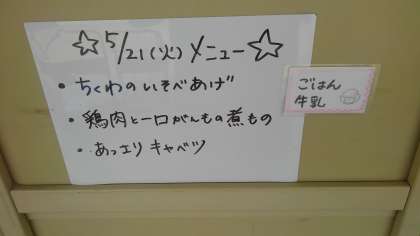 ☆5/21(火)メニュー☆
・ちくわのいそべあげ
・鶏肉と一口がんもの煮もの
・あっさりキャベツ
ごはん
牛乳